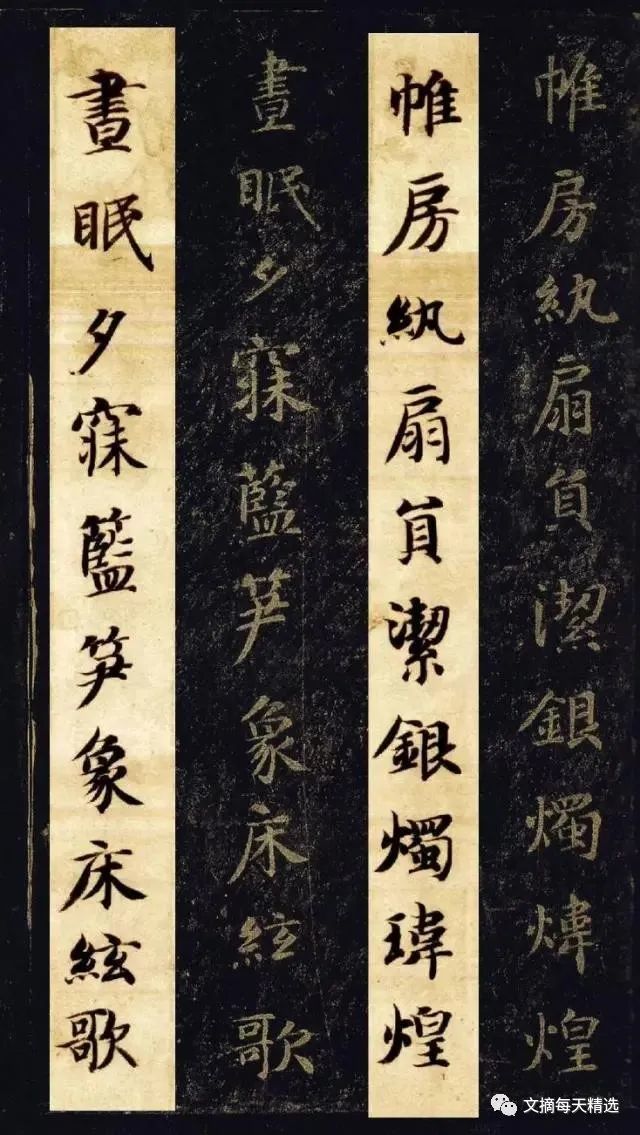 帷房紈扇員潔銀燭煒煌
帷房紈扇員潔銀燭瑋煌
晝眠夕寐藍笋象床絃歌
晝眠夕寐籃笋象床絃歌
文摘每天精选